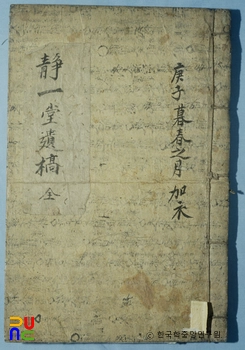 庚子暮春之月 加衣
靜一堂遺稿 全
© 한국학중앙연구원